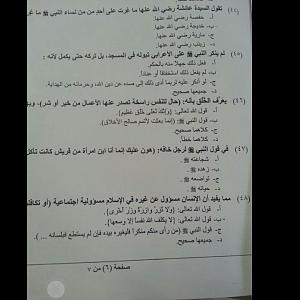 (٤٤) تقول السيدة عائشة رضي الله عنها ما غرت على أحد من من نساء النبي ﷺ ما غر
أ- حفصة رضي الله عنها.
ب- خديجة رضي الله عنها.
ج- مارية رضي الله عنها.
د- زينب رضي الله عنها.
(٤٥) لم ينكر النبي ﷺ على الأعرابي تبوله في المسجد، بل تركه حتى يكمل لأنه:
أ- فعل ذلك جهلا منه بالحكم.
ب- لم يفعل ذلك استخفافا أو عنادا.
ج- لو أنكر عليه لربما أدى ذلك إلى صده عن دين الله، وحرمانه من الهداية.
د- جميعها صحيح.
(٤٦) يعرف الخلق بأنه: (حال للنفس راسخة تصدر عنها الأعمال من خير أو شر)، وي
أ- قول الله تعالى: (وإنك لعلى خلق عظيم).
ب- قول النبي ﷺ: (إنما بعثت لأتمم صالح الأخلاق).
ج- كلاهما صحيح.
د- كلاهما خطأ.
(٤٧) في قول النبي ﷺ لرجل خافه: (هون عليك إنما أنا ابن امرأة من قريش كانت تأكل
أ- شجاعته ﷺ.
ب- زهده ﷺ.
ج- تواضعه ﷺ.
د- حيائه ﷺ.
(٤٨) مما يفيد أن الإنسان مسؤول عن غيره في الإسلام مسؤولية اجتماعية (أو تكافلا
أ- قول الله تعالى: (ولا تزر وازرة وزر أخرى).
ب- قول الله تعالى: (لا يكلف الله نفسا إلا وسعها).
ج- قول النبي ﷺ (من رأى منكم منكرا فليغيره بيده فإن لم يستطع فبلسانه ... ).
د- جميعها صحيح.
صفحة (٦) من ٧